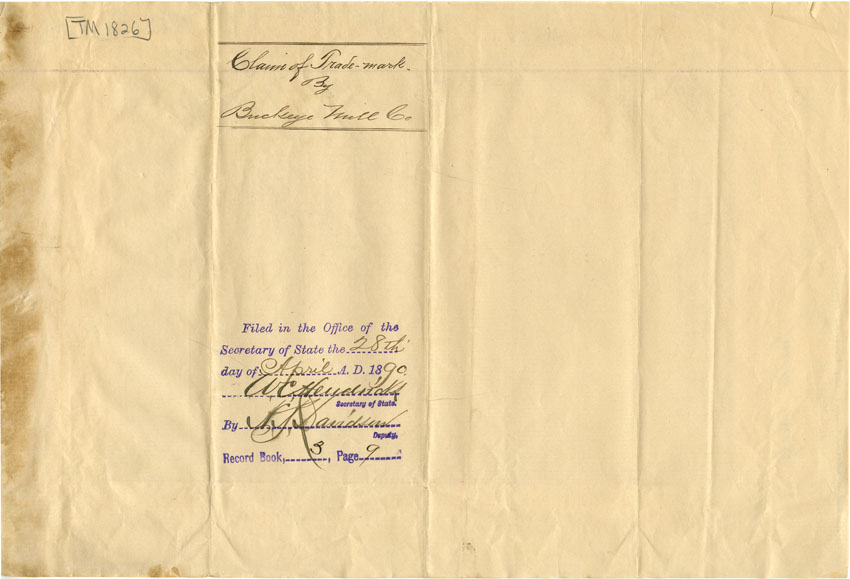 [TM 1826]
Claim of Trade-mark.
By
Buckeye Mill Co
Filed in the Office of the
Secretary of State the 28th
day of April A. D. 1890
W C Hendricks
Secretary of State.
By Davidson
Deputy.
Record Book, 3, Page 9